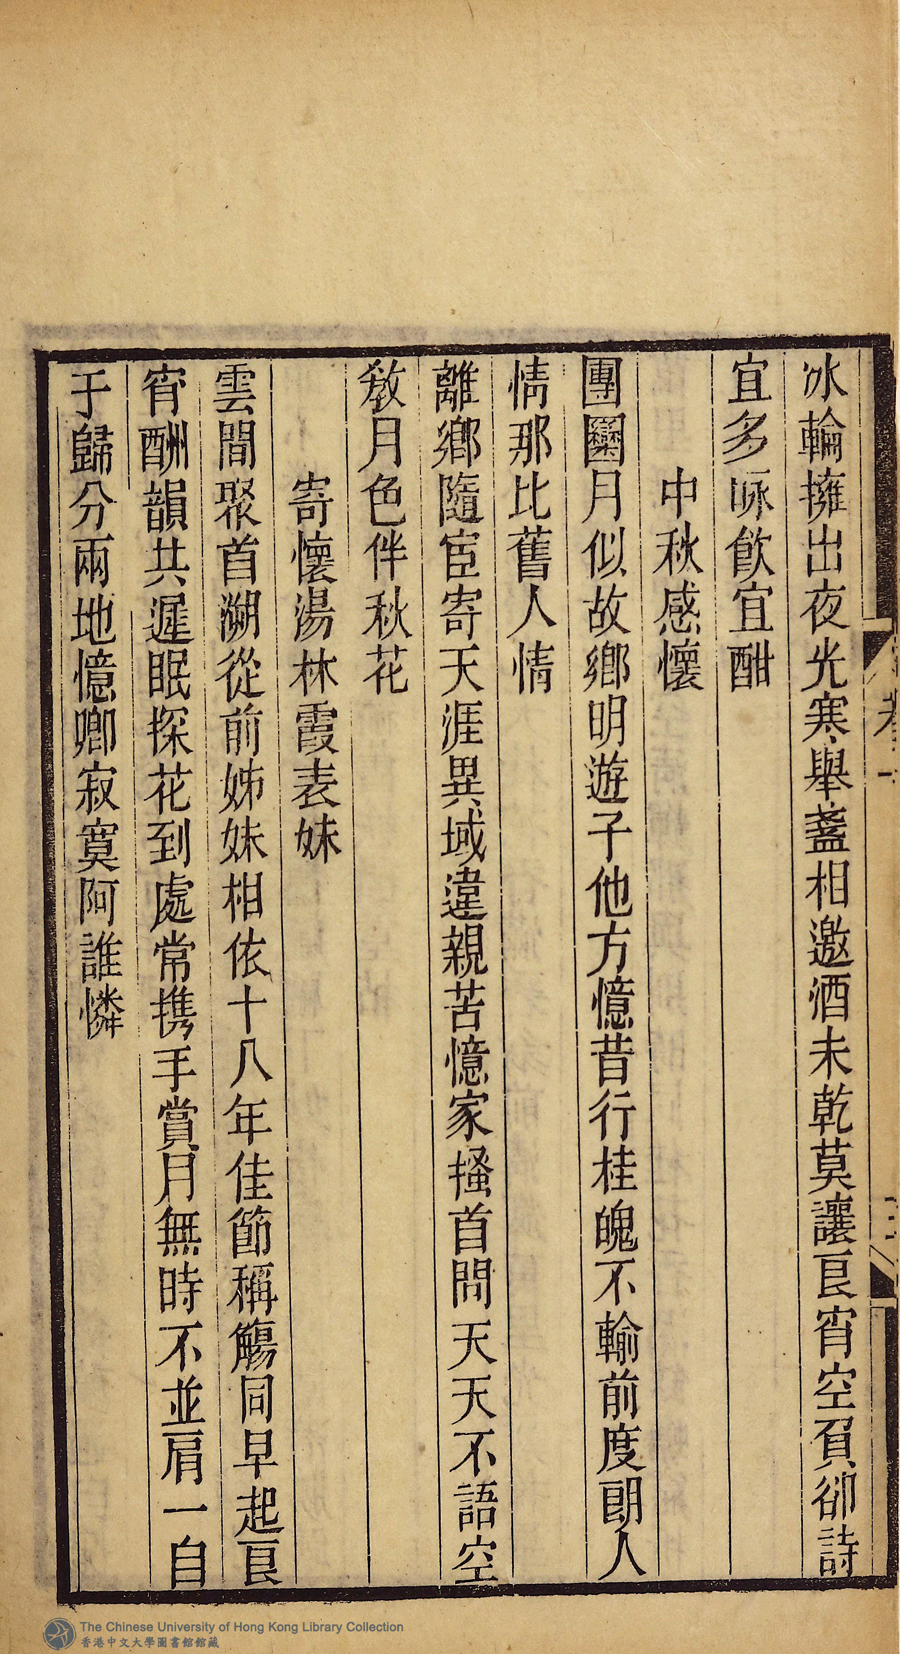 冰輪擁出夜光寒舉盞相邀酒未乾莫讓良宵空負卻詩
宜多詠飲宜酣
中秋感懷
團圞月似故鄉明遊子他方憶昔行桂魄不輸前度朗人
情那比舊人情
離鄉隨宦寄天涯異域違親苦憶家搔首問天天不語空
教月色伴秋花
寄懷湯林霞表妹
雲間聚首溯從前姊妹相依十八年佳節稱觴同早起良
宵酬韻共遲眠探花到處常携手賞月無時不並肩一自
于歸分兩地憶卿寂寞阿誰憐
The Chinese University of Hong Kong Library Collection
香港中文大學圖書館館藏